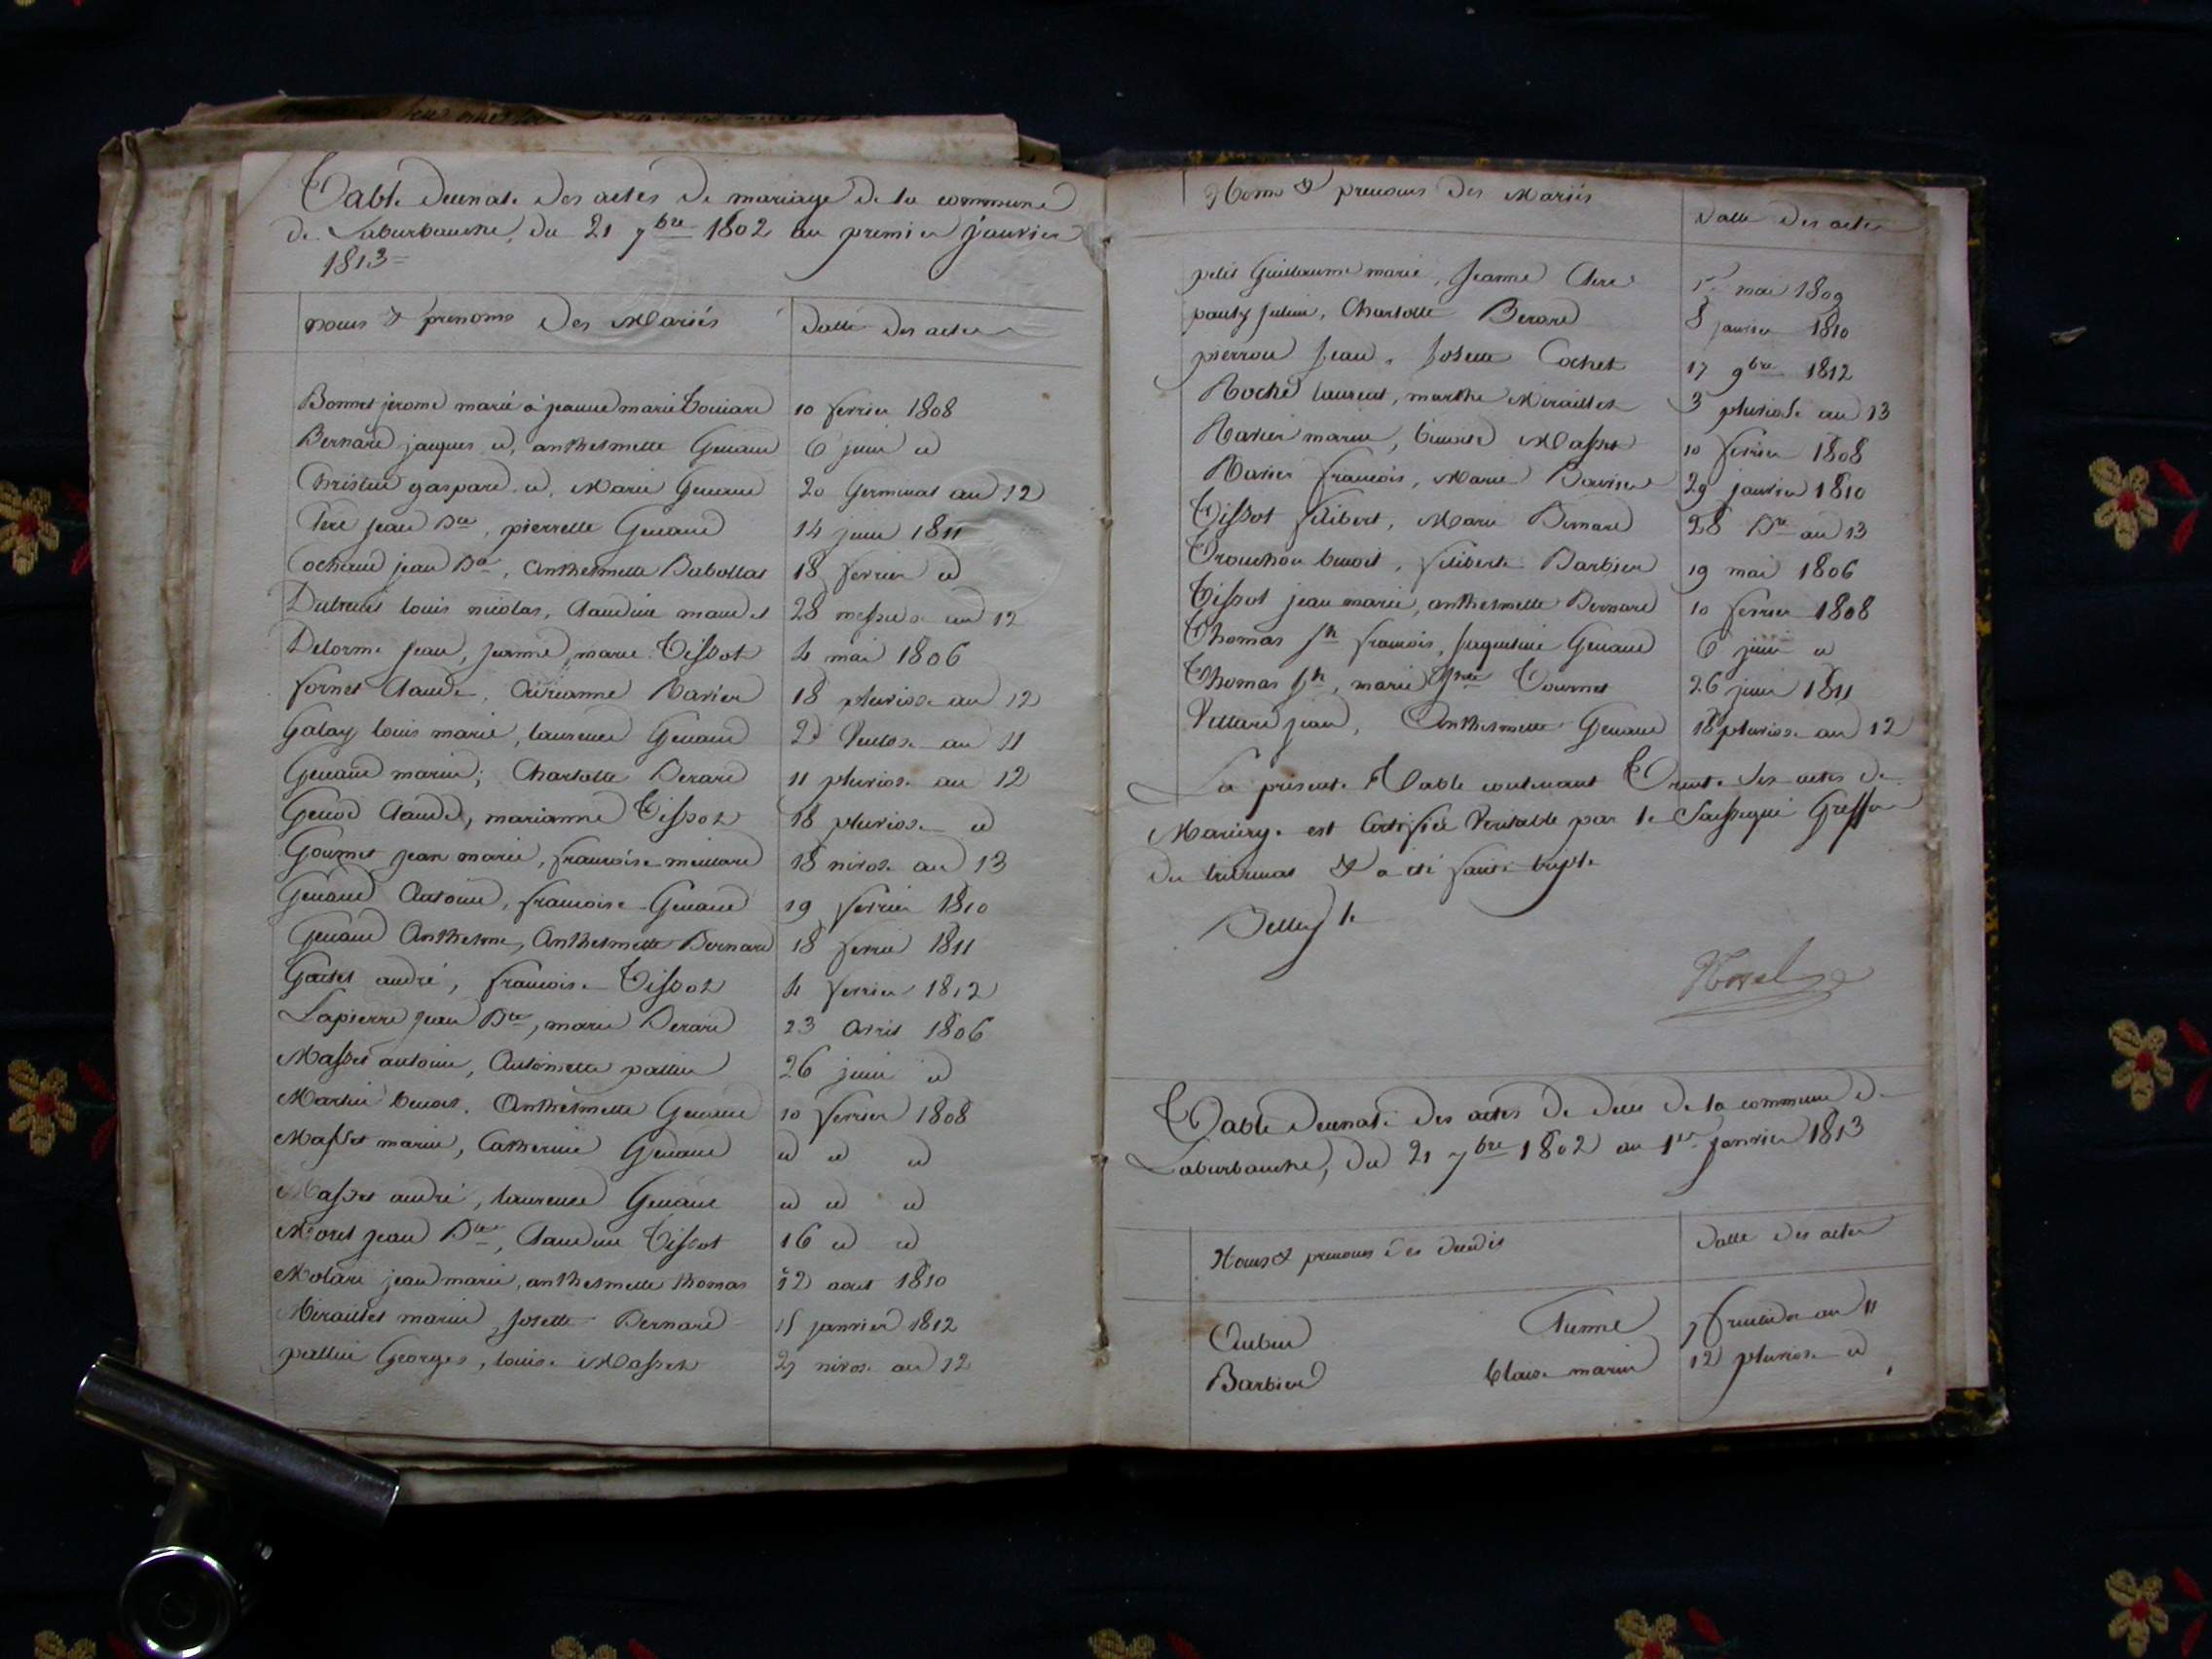 Table decenale des actes de mariage de la commune
de Laburbanche, du 21 7bre 1802 au premier janvier
1813
noms & prenoms des Mariés datte des actes
Bonnet jerome marié à jeanne marie 10 fevrier 1808
Bernard jacques id, anthelmette Genaud 6 juin id
Christin gaspard id, Marie Genaud 20 Germinal an 12
Clerc jean Bte, pierrette Genaud 14 juin 1811
Cochaud jean Bte, Anthelmette 18 fevrier id
louis nicolas, Claudine 28 messidor an 12
Delorme Jean, jeanne marie Tissot 4 mai 1806
fornet Claude, Ravier 18 pluviose an 12
Galay louis marie, laurence Genaud 2 Ventose an 11
Genaud marin, Charlotte Berard 11 pluviose an 12
Genod Claude, marianne Tissot 18 pluviose id
Gournet jean marie, francoise 18 nivose an 13
Genaud Antoine, francoise Genaud 19 fevrier 1810
Genaud Anthelme, Anthelmette Bernard 18 fevrier 1811
andré, francoise Tissot 4 fevrier 1812
Lapierre Jean Bte, marie Berard 23 Avril 1806
Masset antoine, Antoinette pallin 26 juin id
Martin benoit, Anthelmette Genaud 10 fevrier 1808
Masset marin, Catherine Genaud id id id
Masset andré, laurence Genaud id id id
Moret jean Bte, Claudine Tissot 16 id id
Molard jean marie, anthelmette thomas 12 aout 1810
Miraillet marin, Josette Bernard 15 janvier 1812
pallin Georges, louise Masset 27 nivose an 12
Noms & prenoms des Mariés datte des actes
petit Guillaume marie, Jeanne Clerc mai 1809
pauly Julien, Charlotte Berard 8 janvier 1810
pierron Jean, Josette Cochet 17 9bre 1812
Roche laurent, marthe Miraillet 3 pluviose an 13
Ravier marin, benoite Masset 10 fevrier 1808
Ravier francois, Marie 29 janvier 1810
Tissot filibert, Marie Bernard 28 an 13
benoit, filiberte Barbier 19 mai 1806
Tissot jean marie, anthelmette Bernard 10 fevrier 1808
Thomas Jh francois, Jaqueline Genaud 6 juin id
Thomas Jh, marie Tournet 26 juin 1811
Vettard jean, Anthelmette Genaud 18 pluviose an 12
La presente Table contenant Trente six actes de
Mariage est Certifiée Veritable par le Greffier
du tribunal & a été faite triple
Belley le
Table decenale des actes de deces de la commune de
Laburbanche, du 21 7bre 1802 au 1er janvier 1813
Noms & prenoms des decedés datte des actes
Aubin 7 fructidor an 11
Barbier blaise marin 12 pluviose id